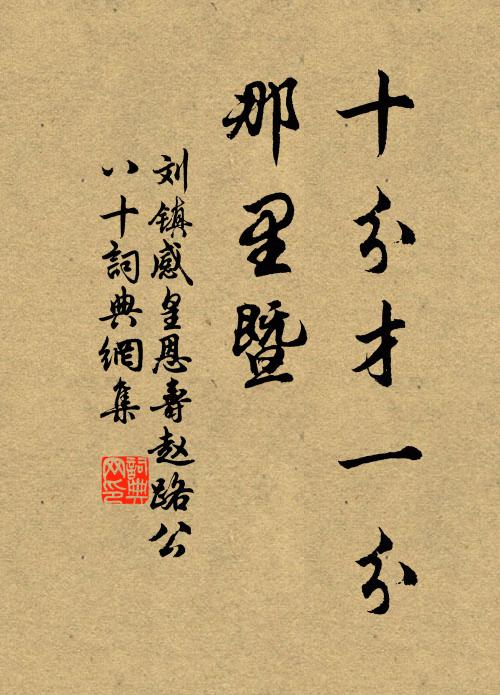 十分才一分
那里暨
刘镇感皇恩寿赵路公
八十詞典網集
詞典
网印